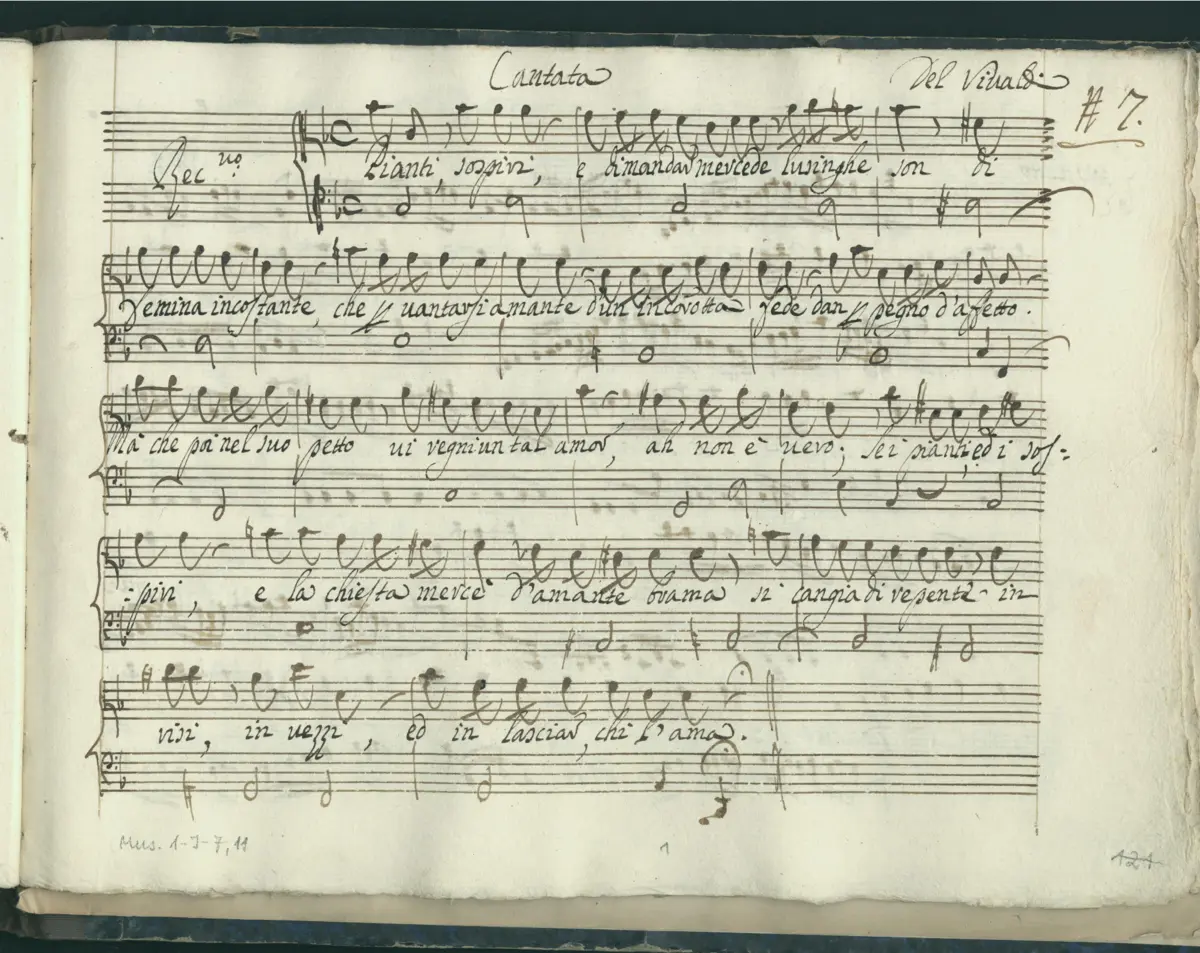 Cantata Del Vivaldi
# 7.
Rec.vo Pianti, sospiri, e dimandar mercede lusinghe son di
femina incostante, che p vantarsi amante d'un incorotta fede dan p pegno d'affetto.
Mà che poi nel suo petto vi regni un tal amor, ah non è vero; sei pianti, ed i sos=
:piri, e la chiesta mercè d'amante brama si cangia di repente in
risi, in vezzi, ed in lasciar, chi l'ama.
Mus. 1-J-7,11 1 121